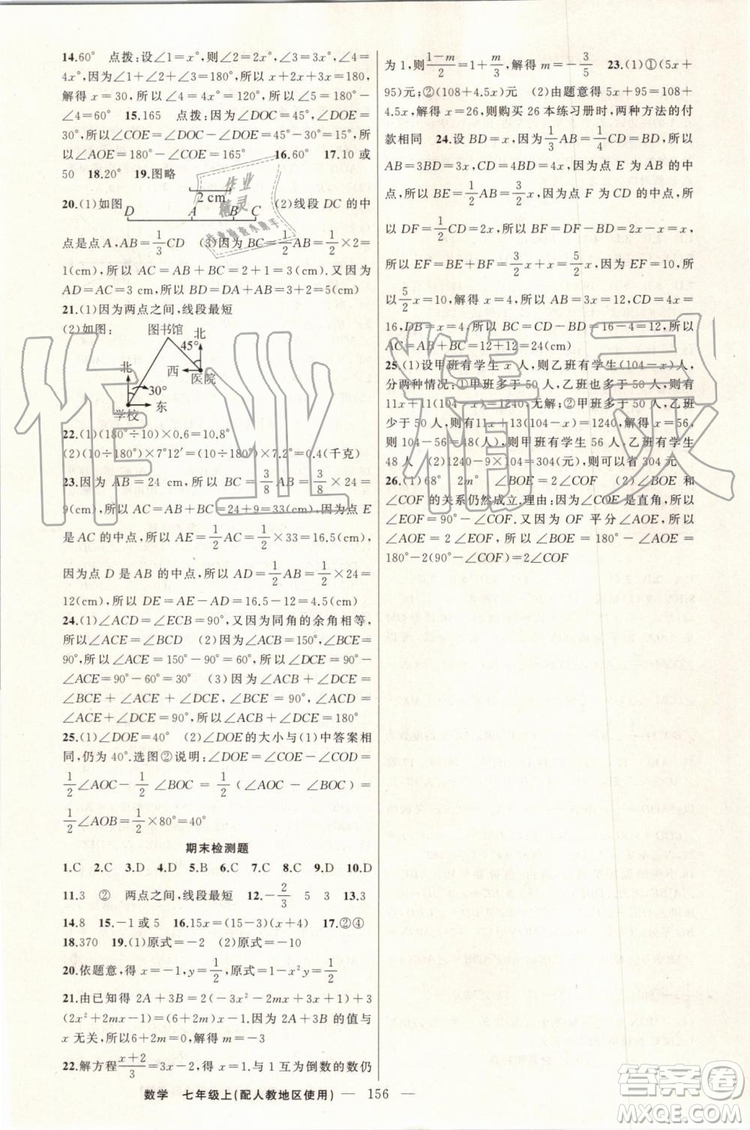 14.60°　点拨:设∠1=x,则∠2=x,∠3=3x,∠4=
∠1,因为∠1+∠2+∠3=180,所以x+2x+3x=180,
所以∠4=60°　15.165　点拨:因为∠DOC=45°,∠DOE
=30°,所以∠COE=∠DOC-∠DOE=45°-30°=15°,
所以∠AOE=180°-∠COE=165°　16.60°　17.10或
50　18.20°　19.图略
20.(1)如图
2 cm
D A B C
(2)线段DC的中
点是点A,AB=1/3CD　(3)因为BC=1/2AB=1/2×2=
1(cm),所以AC=AB+BC=2+1=3(cm),又因为D
AD=AC=3(cm),所以BD=DA+AB=3+2=5(cm)
21.(1)因为两点之间,线段最短
(2)如图:
图书馆 北
45°
西 医院
北
30°
学校 东
22.(1)(180°÷10)×0.6=10.8°
(2)(10÷180°)×7°12′=(10÷180°)×7.2°=0.4(千克)
23.因为AB=24 cm,所以BC=3/8AB=3/8×24=
9(cm),所以AC=AB+BC=24+9=33(cm),因为点E
是AC的中点,所以AE=1/2AC=1/2×33=16.5(cm)
因为点D是AB的中点,所以AD=1/2AB=1/2×24=
12(cm),所以DE=AE-AD=16.5-12=4.5(cm)
24.(1)∠ACD=∠ECB=90°,又因为同角的余角相等,
所以∠ACE=∠BCD　(2)因为∠ACB=150°,∠BCE=
90°,所以∠ACE=150°-90°=60°,所以∠DCE=90°
-∠ACE=90°-60°=30°　(3)因为∠ACB+∠DCE=
∠BCE+∠ACE+∠DCE,所以∠ACB+∠DCE=90°+
∠ACE+∠DCE=180°,所以∠ACB+∠DCE=180°
25.(1)∠DOE=40°　(2)∠DOE的大小与(1)中答案相
同,仍为40°.选图②说明:∠DOE=∠COE-∠COD=
1/2∠AOC-1/2∠BOC=1/2(∠AOC-∠BOC)=
1/2∠AOB=1/2×80°=40°
期末检测题
1.C　2.C　3.D　4.D　5.B　6.D　7.C　8.D　9.C　10.D
11.3　②　两点之间,线段最短　12.-2/3　5　3　13.3
14.8　15.-1或5　16.15x=(15-3)(x+4)　17.②④
18.370　19.(1)原式=-1/2　(2)原式=-10
20.依题意,得x=-1,y=1/2,化简,得原式=1-x²y=1/2
21.由已知得2A+3B=2(-3x²-2mx+3x+1)+3
(2x²+2mx-1)=(6+2m)x-1,因为2A+3B的值与
x无关,所以6+2m=0,解得m=-3
22.解方程(x+2)/3=3x-2,得x=1,与1互为倒数的数仍
为1,则(1-m)/2=1/2+1/5·1+1/5,解得m=-3/5　23.(1)①(5x+
95)元;②(108+4.5x)元　(2)由题意得5x+95=108+
4.5x,解得x=26,则购买26本练习册时,两种方法的付
款相同　24.设BD=x,因为1/3AB=1/4CD=BD,所以
AB=3BD=3x,CD=4BD=4x,因为点E为AB的中
点,所以BE=1/2AB=3/2x,因为点F为CD的中点,所
以DF=1/2CD=2x,所以BF=DF-BD=2x-x=x,
所以EF=BE+BF=3/2x+x=5/2x,因为EF=10,所以
5/2x=10,解得x=4,所以AB=3x=12,CD=4x=
16,所以BC=CD-BD=16-4=12(cm),所以
AC=AB+BC=12+12=24(cm)
25.(1)设甲班有学生x人,则乙班有学生(104-x)人,
分两种情况:①甲班多于50人,乙班也多于50人,则有
11x+11(104-x)=1240,无解;②甲班多于50人,乙班
少于50人,所以11x+13(104-x)=1240,解得x=56,
则104-56=48(人),则甲班有学生56人,乙班有学生
48人　(2)1240-9×104=304(元),所以可省304元
26.(1)68°　2m°　∠BOE=2∠COF　(2)∠BOE和
∠COF的关系仍然成立,理由是:因为∠COE是直角,所
以∠EOF=90°-∠COF,又因为OF平分∠AOE,所以
∠AOE=2∠EOF,所以∠BOE=180°-∠AOE=
180°-2(90°-∠COF)=2∠COF
数学　七年级上(配人教地区使用)　— 156 —
作业精灵
作业精灵
答案圈
MXQE.COM